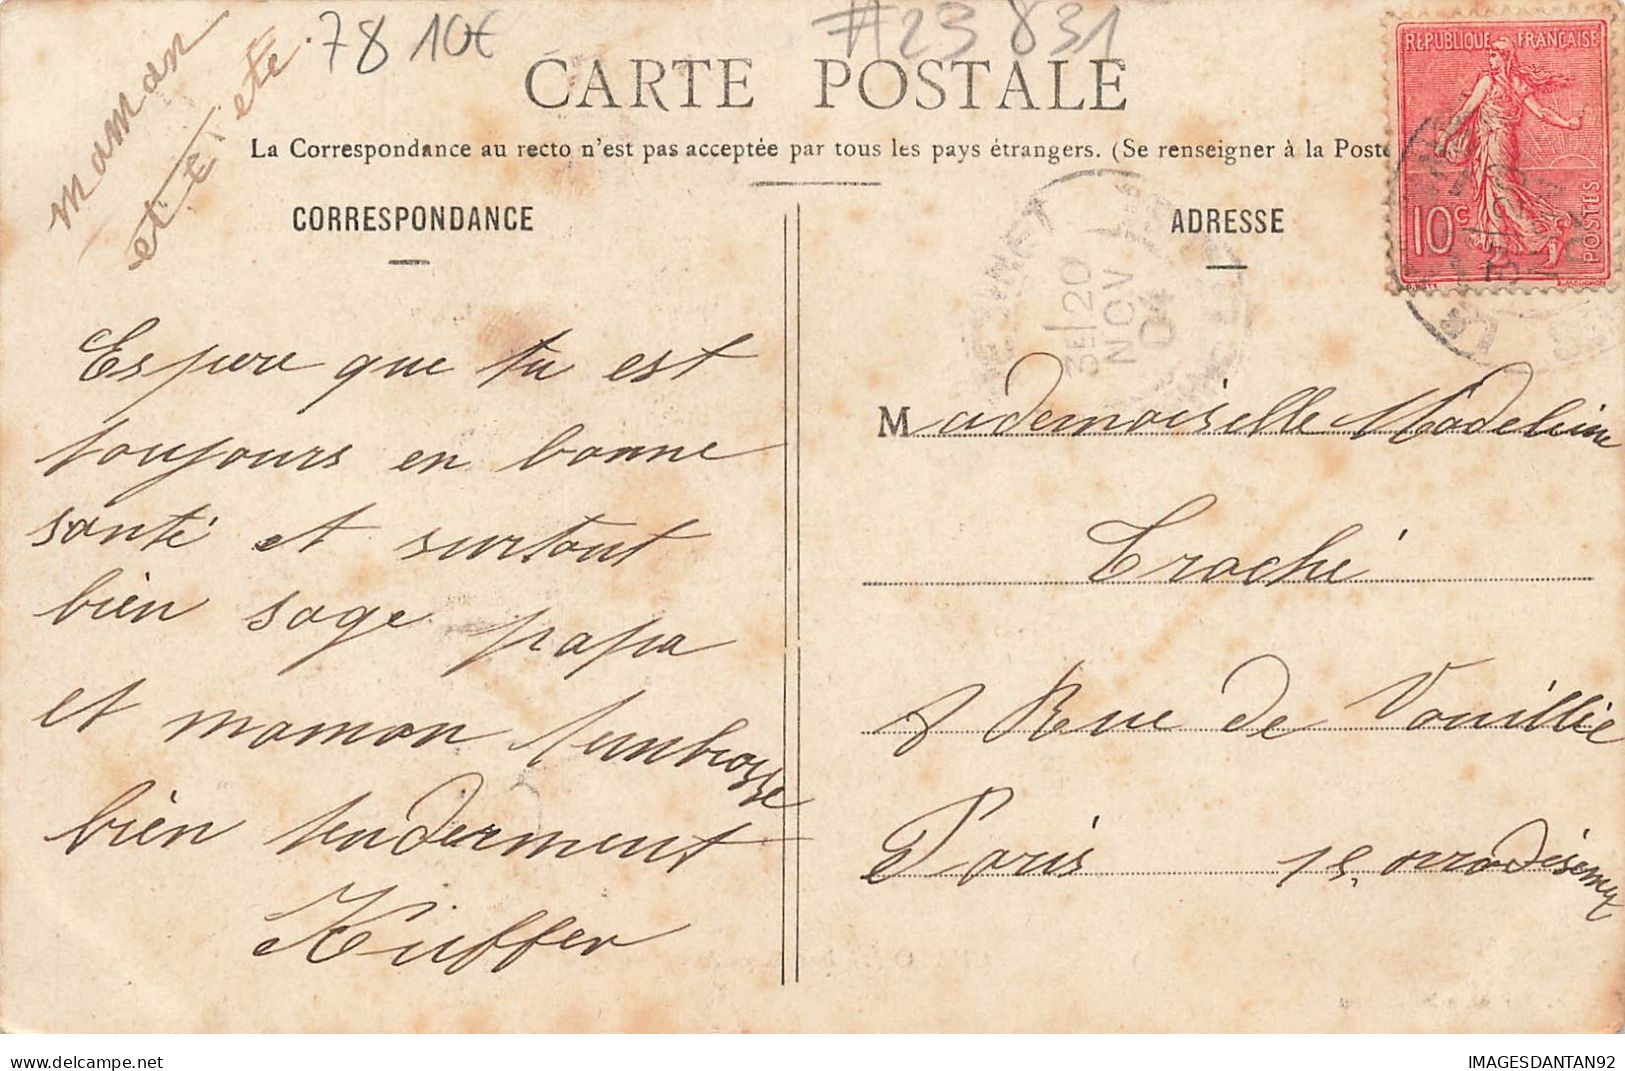 maman
et été
78 10€
#23831
CARTE POSTALE
La Correspondance au recto n'est pas acceptée par tous les pays étrangers. (Se renseigner à la Poste
CORRESPONDANCE
ADRESSE
RÉPUBLIQUE FRANÇAISE
10c
POSTES
3E/20
NOV
04
Espère que tu est
toujours en bonne
santé et surtout
bien sage papa
et maman t'embrasse
bien tenderment
Kuffer
Mademoiselle Madeleine
Troché
8 Rue de Vouillie
Paris 15. arrodisemt
delcampe.net
IMAGESDANTAN92